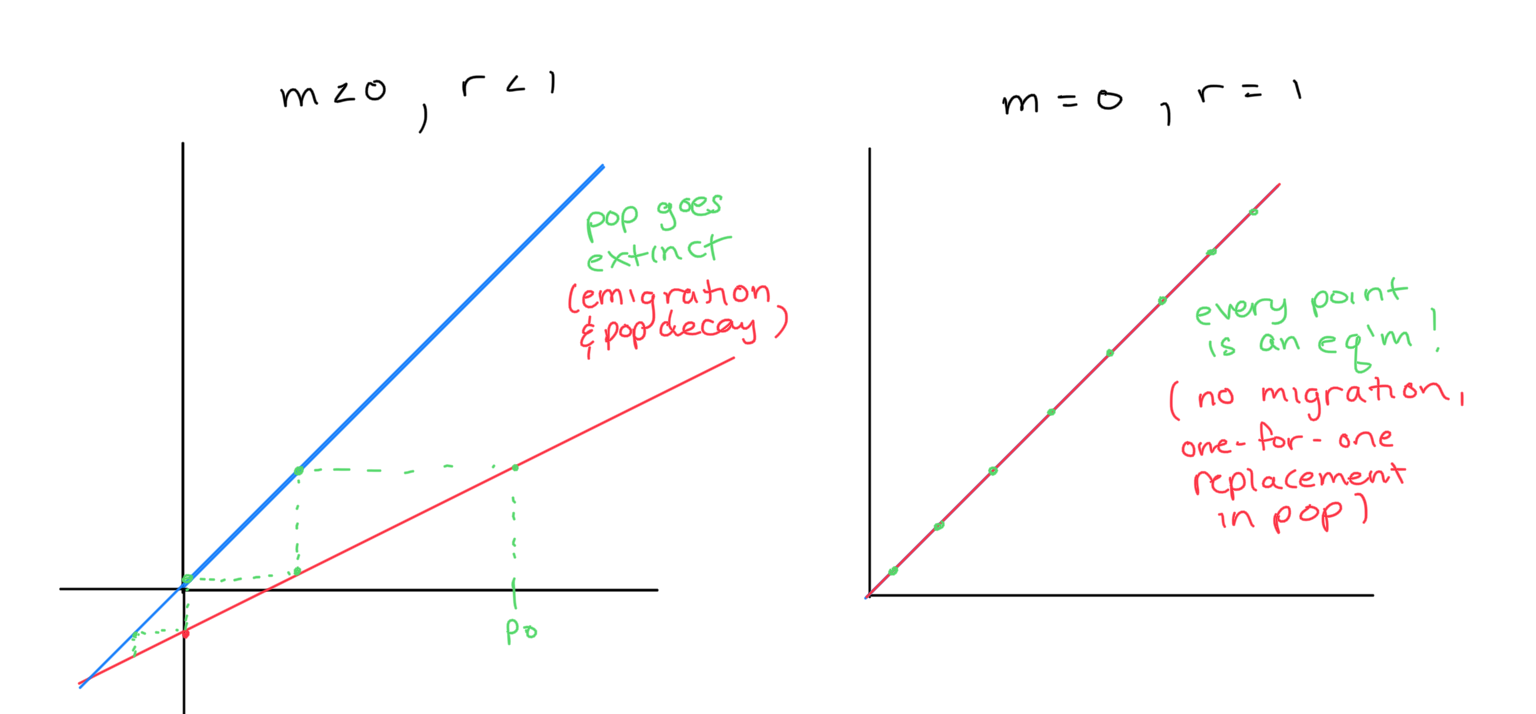 m < 0 , r < 1
pop goes
extinct
(emigration
& pop decay)
p0
m = 0 , r = 1
every point
is an eq'm !
( no migration,
one-for-one
replacement
in pop )